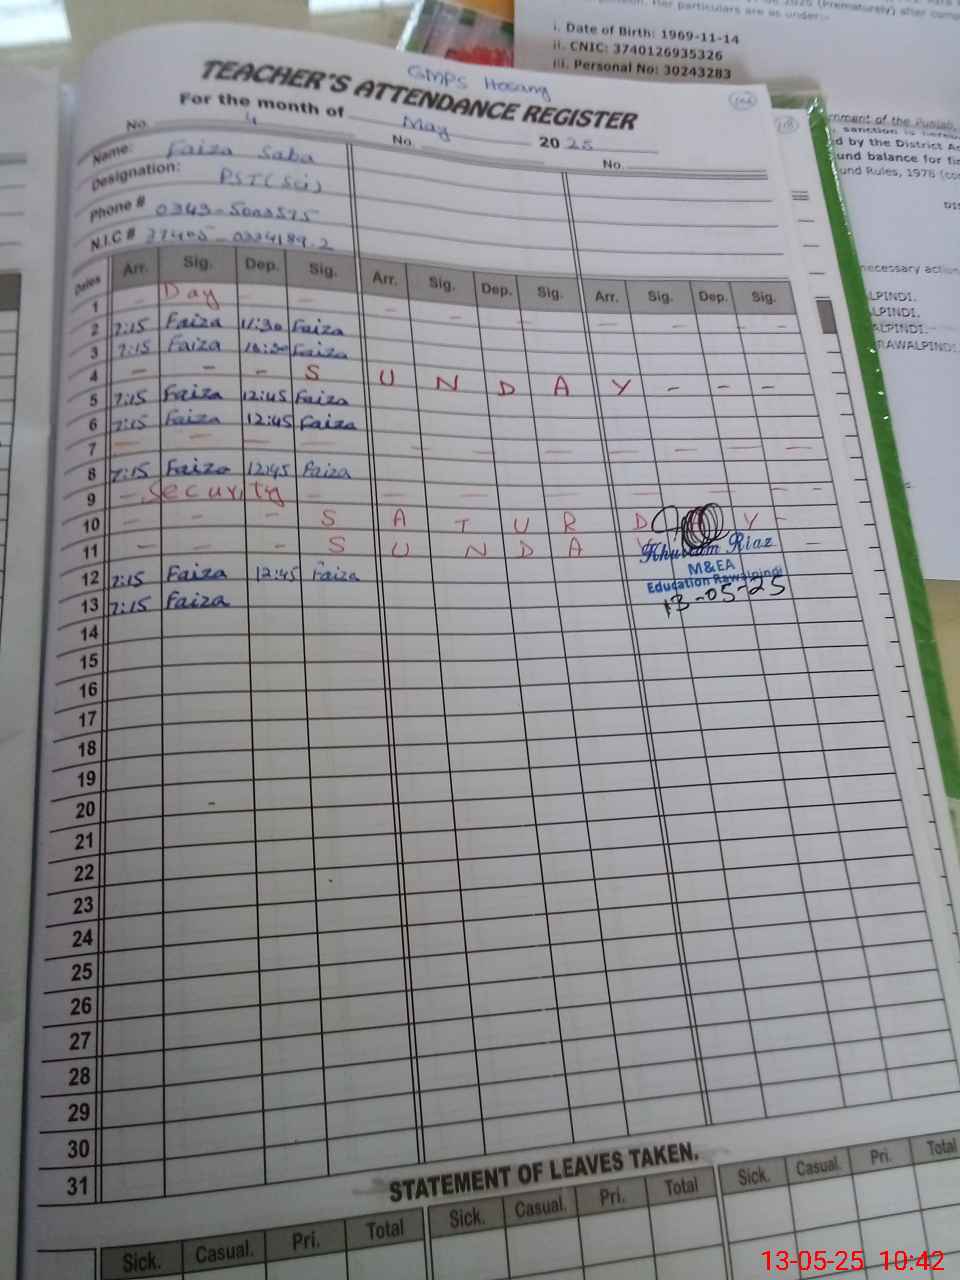 2025 (Prematurely) after
Her particulars are as under:-
i. Date of Birth: 1969-11-14
ii. CNIC: 3740126935326
iii. Personal No: 30243283
nment of the Punjab,
sanction is
d by the District
und balance for
und Rules, 1978
necessary action
ALPINDI.
LPINDI.
ALPINDI.
RAWALPINDI.
GMPS Hosang
TEACHER'S ATTENDANCE REGISTER
For the month of May 2025
No. 4 No. No.
Name: Faiza Saba
Designation: PST(Sci)
Phone #
N.I.C #
Dates Arr. Sig. Dep. Sig. Arr. Sig. Dep. Sig. Arr. Sig. Dep. Sig.
1 - Day - - - - - - - - -
2 7:15 Faiza 11:30 Faiza
3 7:15 Faiza Faiza
4 - - - S U N D A Y - - -
5 7:15 Faiza 12:45 Faiza
6 7:15 Faiza 12:45 Faiza
7 - - - - - - - - - - -
8 7:15 Faiza 12:45 Faiza
9 - Security - - - - - - - -
10 - - - S A T U R D A Y -
11 - - - S U N D A Y -
Khurram Riaz
M&EA
Education Rawalpindi
13-05-25
12 7:15 Faiza 12:45 Faiza
13 7:15 Faiza
14
15
16
17
18
19
20
21
22
23
24
25
26
27
28
29
30
31
STATEMENT OF LEAVES TAKEN.
Sick. Casual. Pri. Total Sick. Casual. Pri. Total Sick. Casual. Pri. Total
13-05-25 10:42